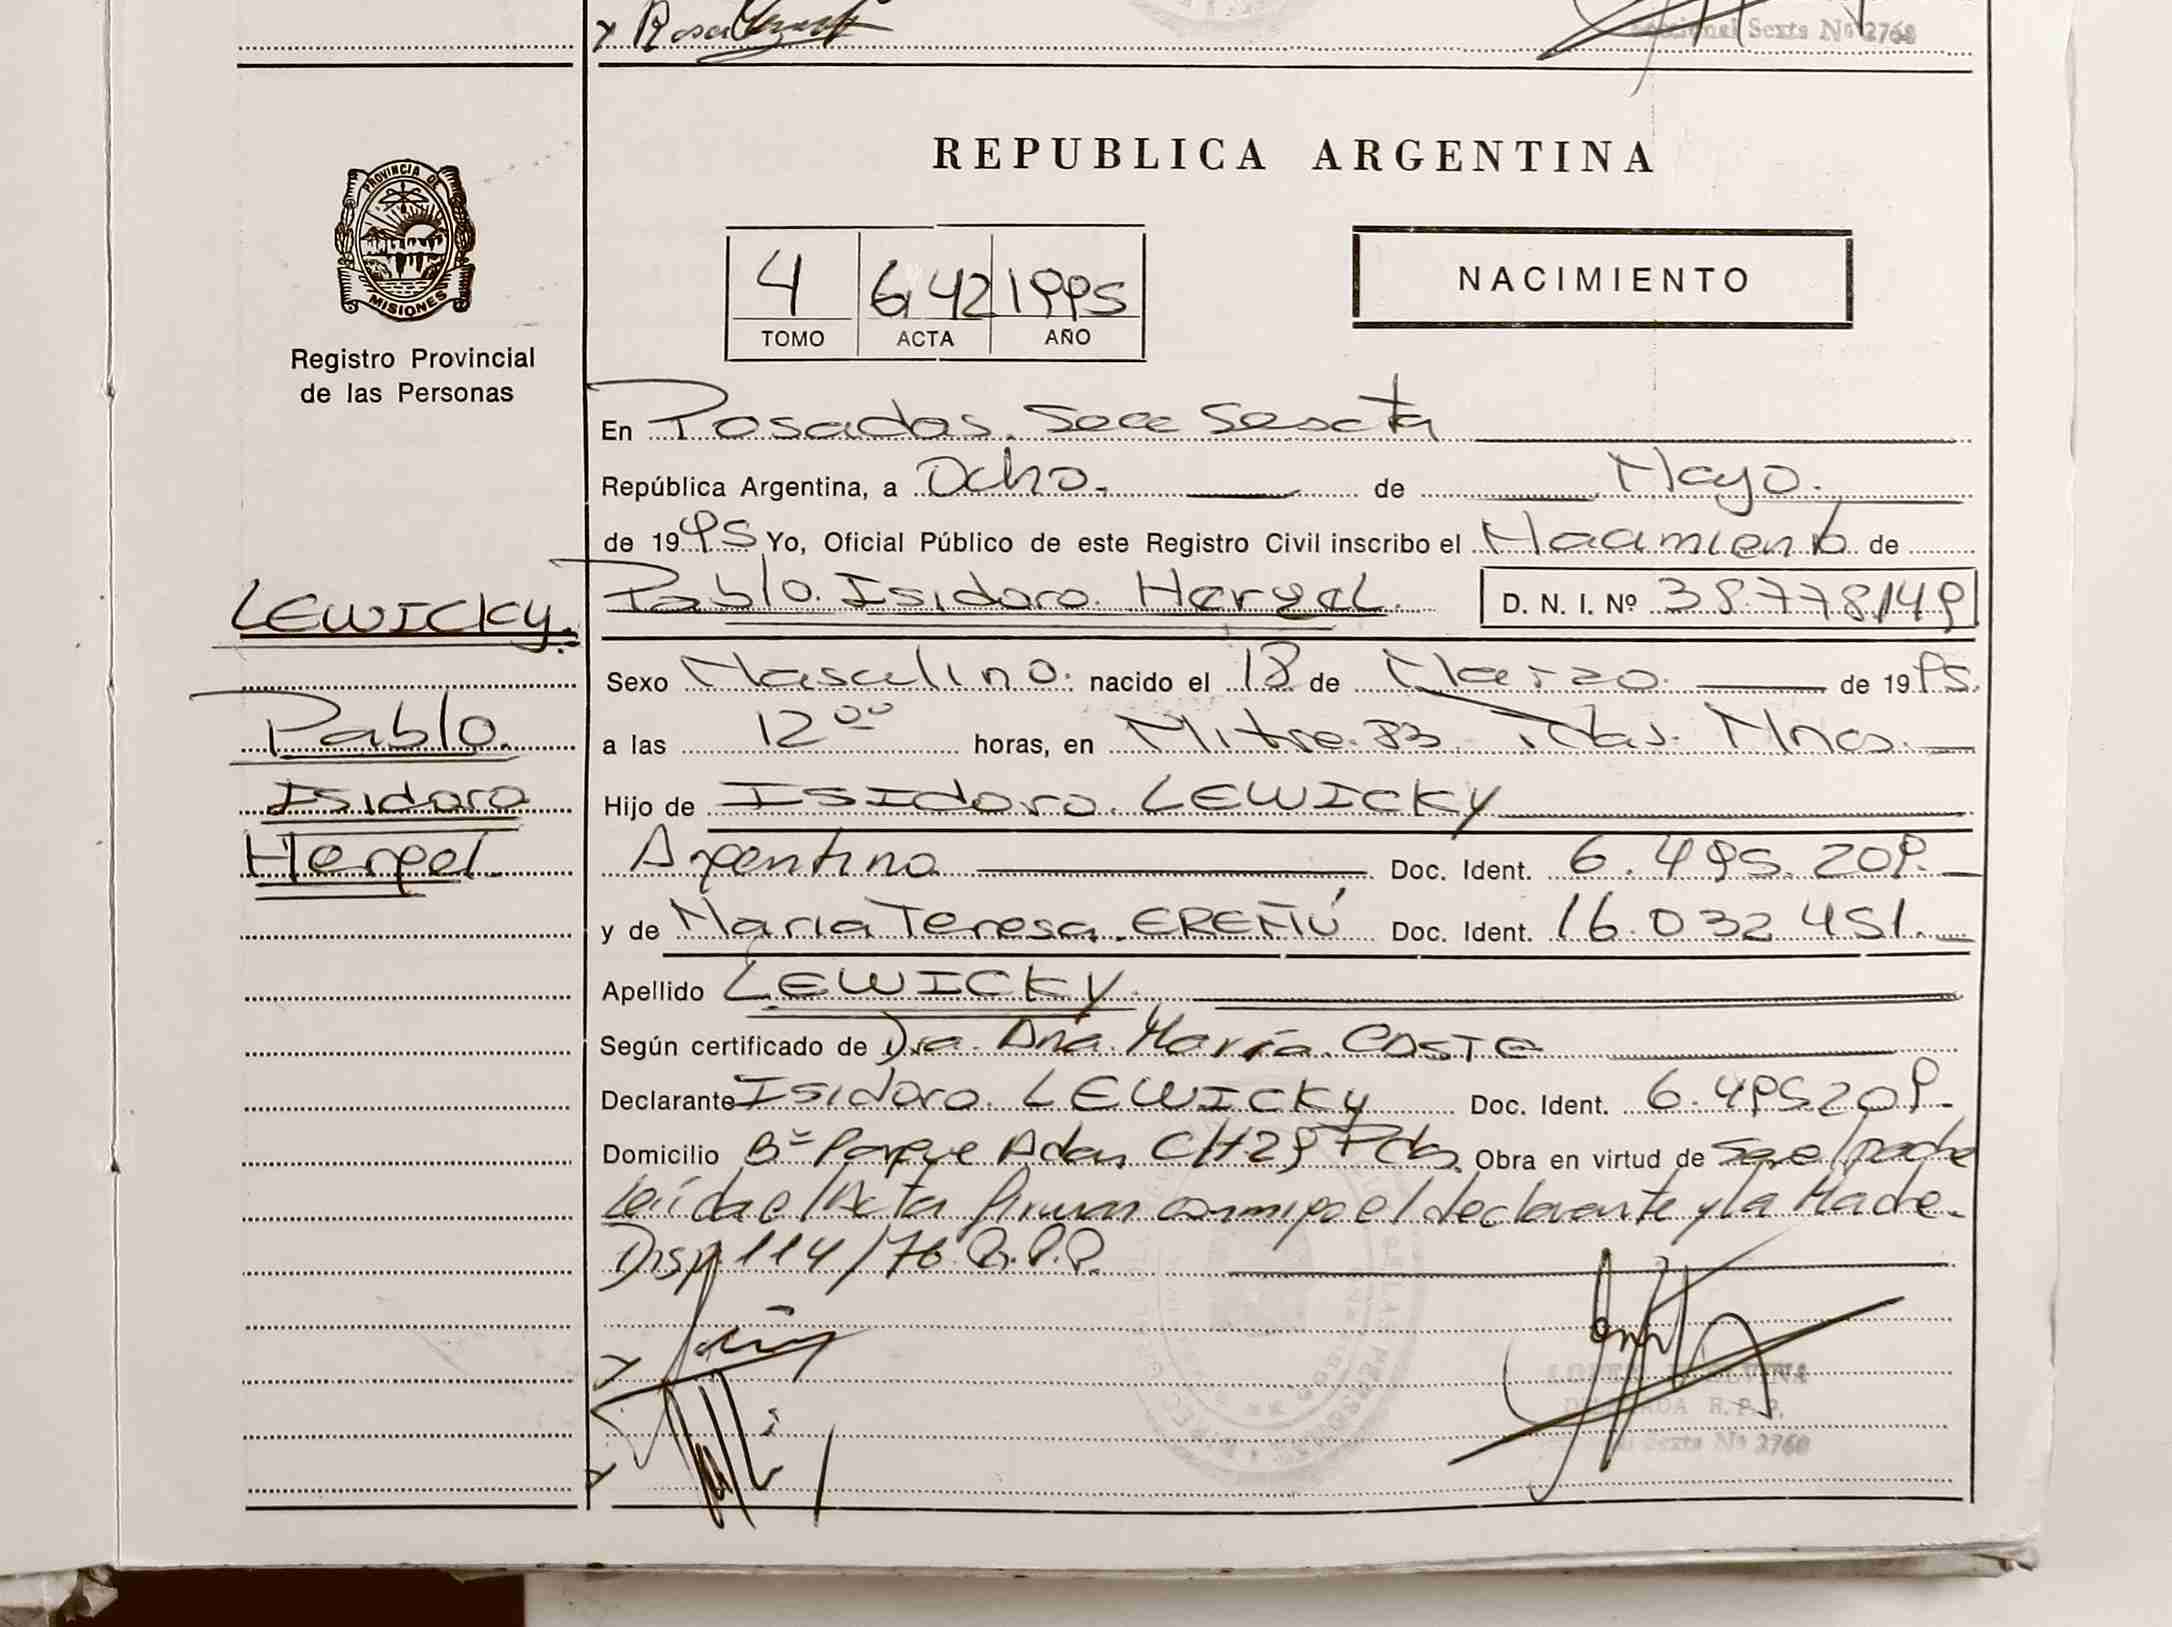 y Rosa
Seccional Sexta Nº 2768
REPUBLICA ARGENTINA
PROVINCIA DE
MISIONES
Registro Provincial
de las Personas
4 642 1995
TOMO ACTA AÑO
NACIMIENTO
En Posadas. Secc Sexta
República Argentina, a Ocho. de Mayo.
de 1995 Yo, Oficial Público de este Registro Civil inscribo el Nacimiento de
Pablo. Isidoro. Hergel. D. N. I. Nº 38.778.149
LEWICKY.
Pablo.
Isidoro
Hergel.
Sexo Masculino. nacido el 18 de Marzo. de 1995.
a las 12 00 horas, en Mitre 83 Pdas. Mnes.
Hijo de ISIdoro. LEWICKY
Argentino Doc. Ident. 6.495.209.
y de María Teresa. EREÑÚ Doc. Ident. 16.032 451.
Apellido LEWICKY.
Según certificado de Dra. Ana. María. COSTE
Declarante Isidoro. LEWICKY Doc. Ident. 6.495209.
Domicilio Bº Parque Adam CH29 Pdas. Obra en virtud de ser el padre
Leída el Acta firman conmigo el declarante y la Madre.
Disp. 114/76 R.P.P.
R. P. P.
Sexta Nº 2768